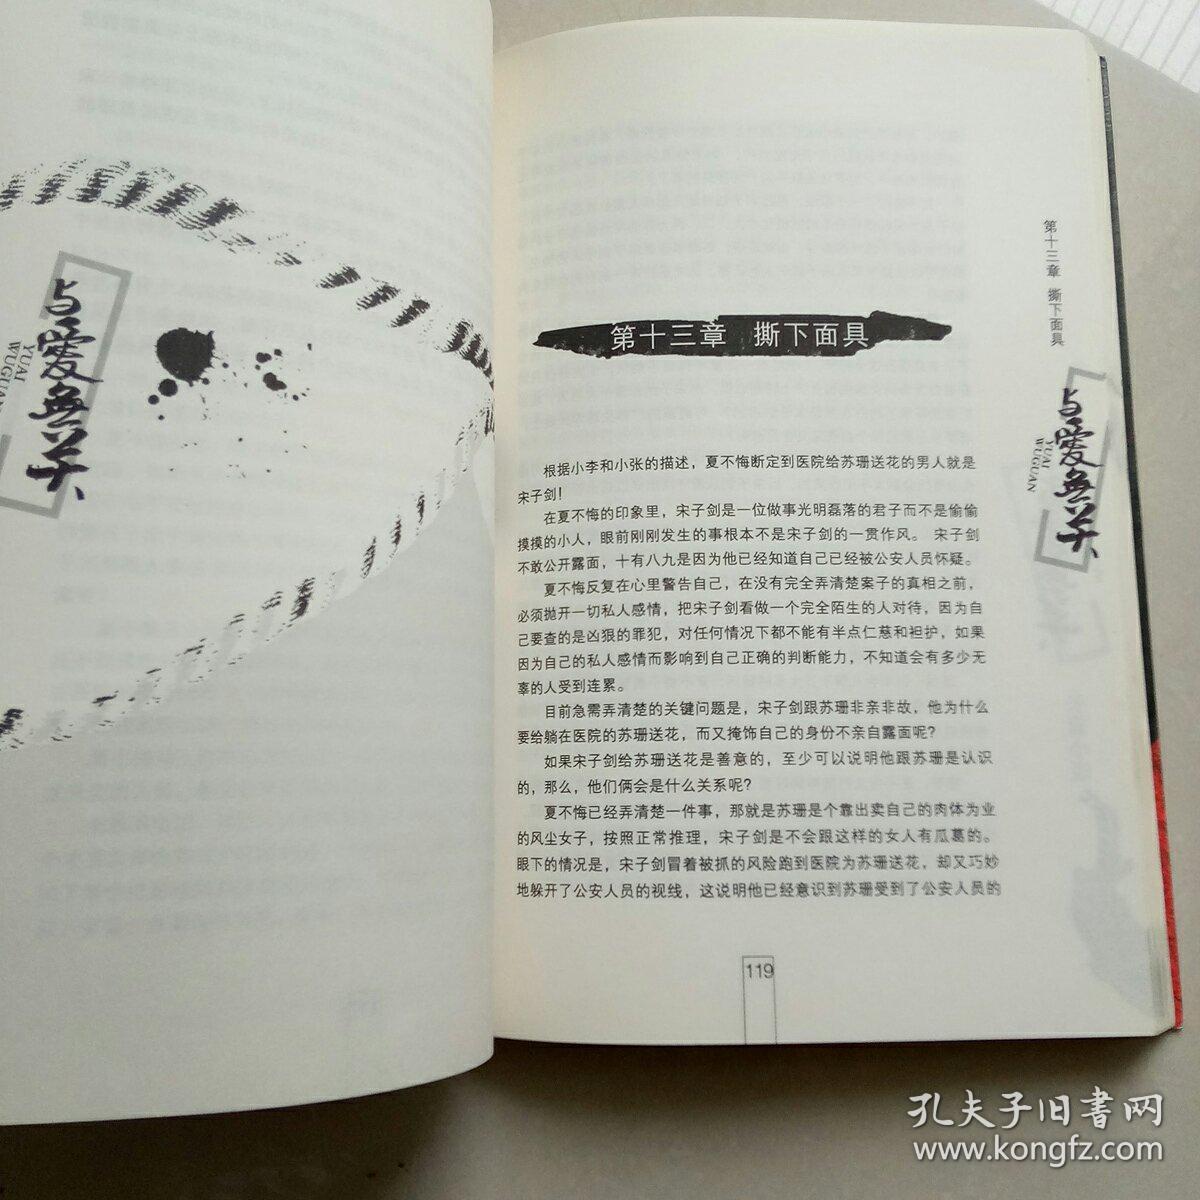 与愛無关
YUAI
WUGUAN
第十三章 撕下面具
根据小李和小张的描述，夏不悔断定到医院给苏珊送花的男人就是
宋子剑！
在夏不悔的印象里，宋子剑是一位做事光明磊落的君子而不是偷偷
摸摸的小人，眼前刚刚发生的事根本不是宋子剑的一贯作风。 宋子剑
不敢公开露面，十有八九是因为他已经知道自己已经被公安人员怀疑。
夏不悔反复在心里警告自己，在没有完全弄清楚案子的真相之前，
必须抛开一切私人感情，把宋子剑看做一个完全陌生的人对待，因为自
己要查的是凶狠的罪犯，对任何情况下都不能有半点仁慈和袒护，如果
因为自己的私人感情而影响到自己正确的判断能力，不知道会有多少无
辜的人受到连累。
目前急需弄清楚的关键问题是，宋子剑跟苏珊非亲非故，他为什么
要给躺在医院的苏珊送花，而又掩饰自己的身份不亲自露面呢？
如果宋子剑给苏珊送花是善意的，至少可以说明他跟苏珊是认识
的，那么，他们俩会是什么关系呢？
夏不悔已经弄清楚一件事，那就是苏珊是个靠出卖自己的肉体为业
的风尘女子，按照正常推理，宋子剑是不会跟这样的女人有瓜葛的。
眼下的情况是，宋子剑冒着被抓的风险跑到医院为苏珊送花，却又巧妙
地躲开了公安人员的视线，这说明他已经意识到苏珊受到了公安人员的
119
第十三章 撕下面具
与愛無关
YUAI
WUGUAN
孔夫子旧書网
www.kongfz.com